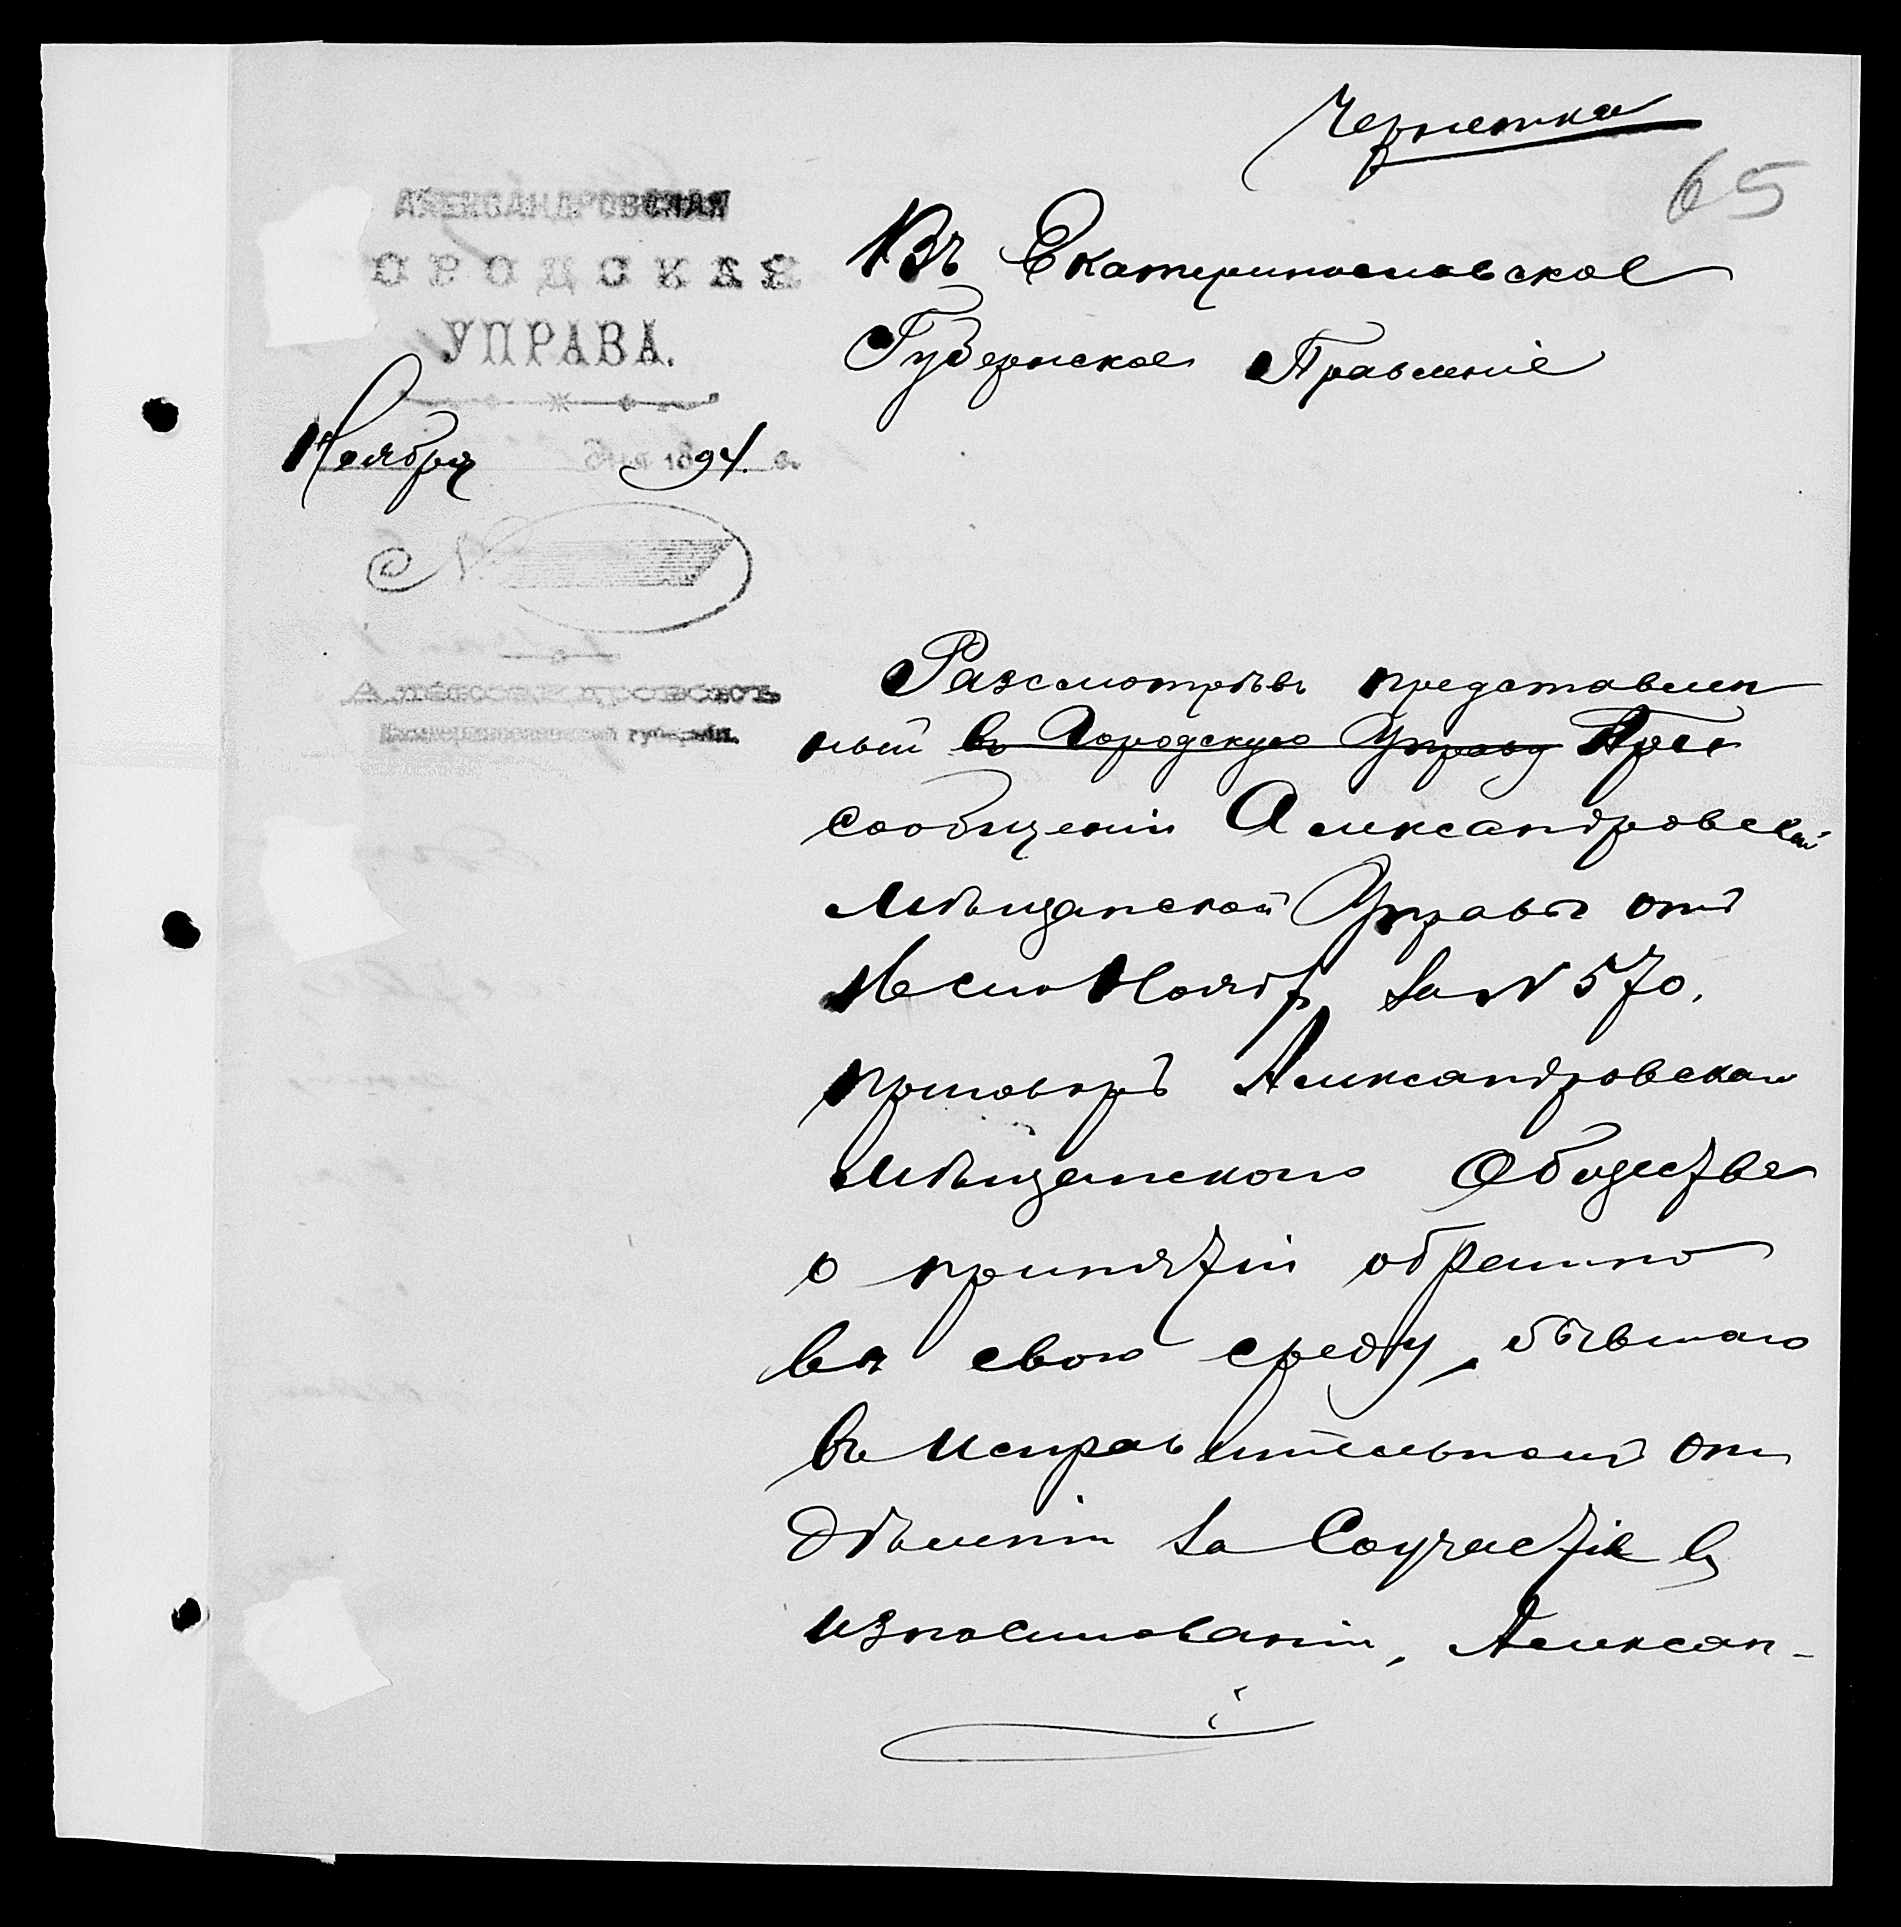 Чернетка
65
АЛЕКСАНДРОВСКАЯ
ОРОДСКАЯ
УПРАВА.
Ноября дня 1894 г.
№
АЛЕКСАНДРОВСКЪ
Екатеринославской губерніи.
Въ Екатеринославское
Губернское Правленіе
Разсмотрѣвъ представлен
ный въ Городскую Управу При
сообщеніи Александровской
Мѣщанской Управы отъ
Ноября за № 570,
приговоръ Александровскаго
Мѣщанскаго Общества
о принятіи обратно
въ свою среду, бывшаго
въ Исправительномъ от
дѣленіи за Соучастіе въ
изнасилованіи, Алексан-